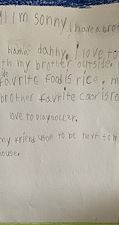 I'm sonny I have a brot
hame danny, I love to
th my brother outside.
favrite food is rice. m
brother favrite caor is re
love to play soccer.
my friend used to be next to m
house.